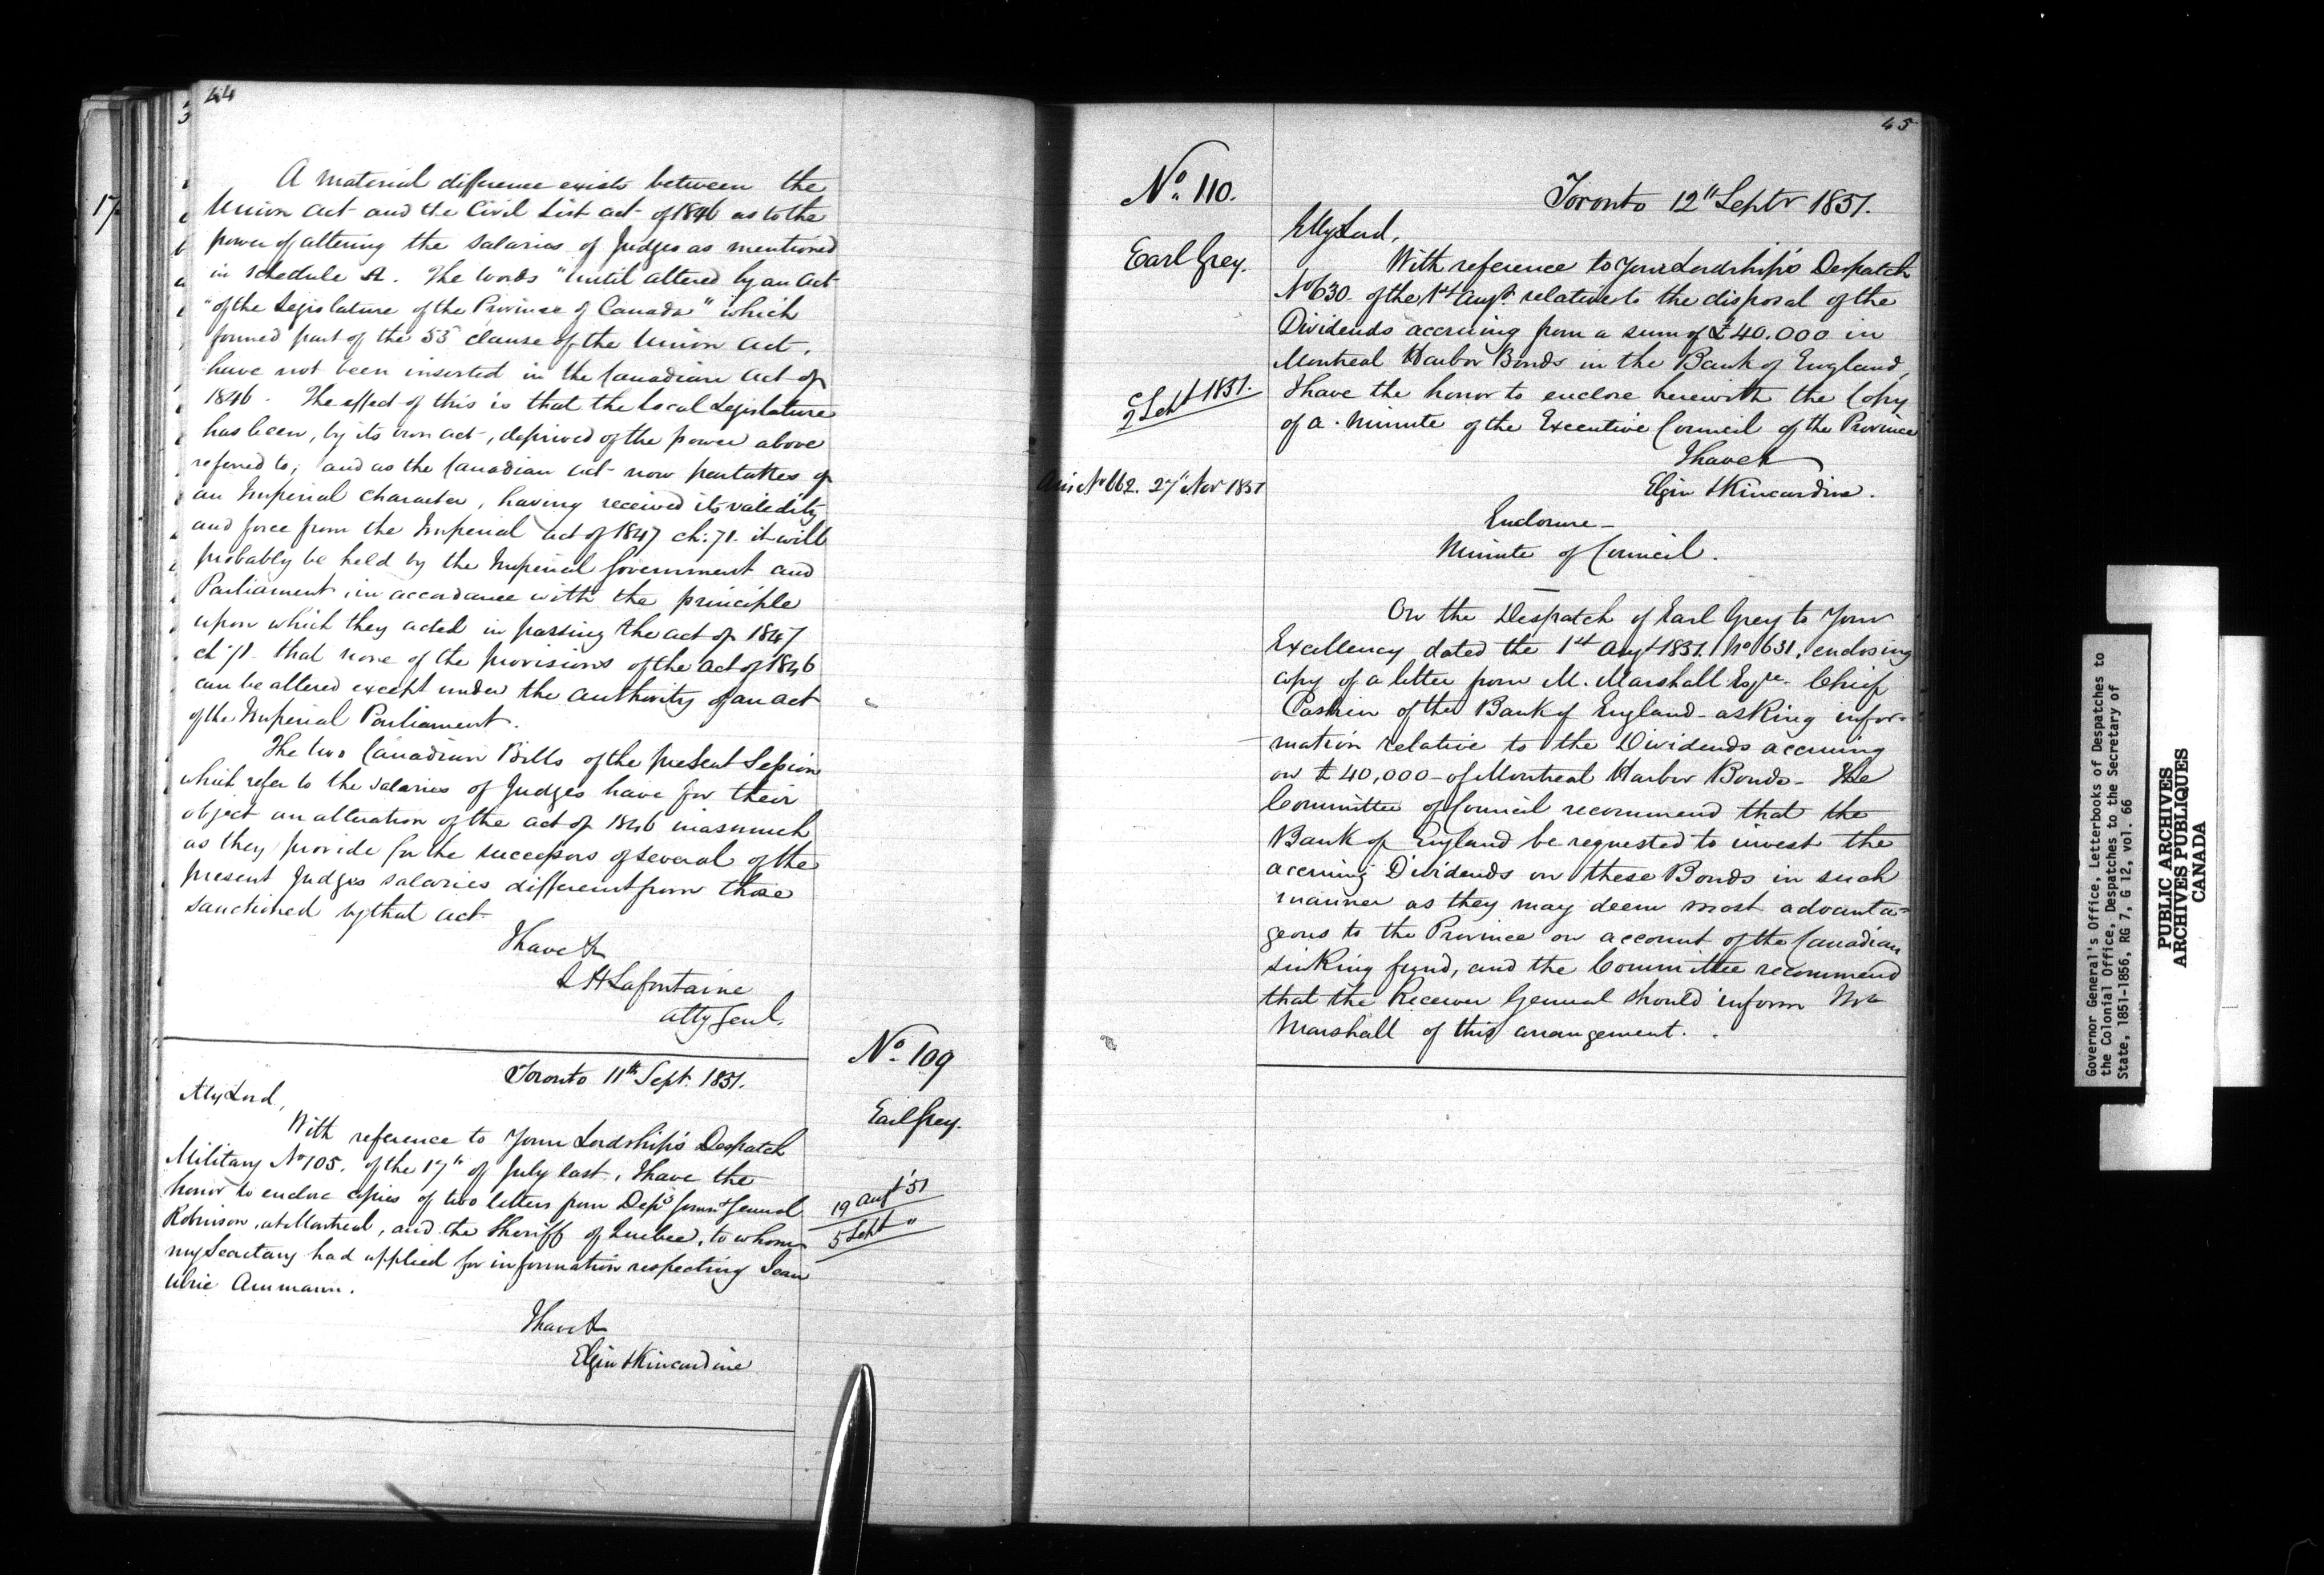 44
A material difference exists between the
Union Act and the Civil List Act of 1846 as to the
power of altering the salaries of Judges as mentioned
in schedule A. The words "until altered by an Act
"of the Legislature of the Province of Canada" which
formed part of the 53 clause of the Union Act,
have not been inserted in the Canadian Act of
1846. The effect of this is that the Local Legislature
has been, by its own Act, deprived of the power above
referred to; and as the Canadian Act now partakes of
an Imperial character, having received its validity
and force from the Imperial Act of 1847 ch: 71. it will
probably be held by the Imperial Government and
Parliament, in accordance with the principle
upon which they acted in passing the Act of 1847
ch 71. that none of the provisions of the Act of 1846
can be altered except under the authority of an Act
of the Imperial Parliament.
The two Canadian Bills of the present Session
which refer to the salaries of Judges have for their
object an alteration of the Act of 1846 inasmuch
as they provide for the successors of several of the
present Judges salaries different from those
sanctioned by that Act.
I have &
L H Lafontaine
Atty Genl.
No. 109
Earl Grey.
Toronto 11th Sept. 1851.
My Lord,
With reference to Your Lordship's Despatch
Military No 105. of the 17th of July last, I have the
honor to enclose copies of two letters from Depy Commy General
Robinson, at Montreal, and the Sheriff of Quebec, to whom
my Secretary had applied for information respecting Jean
Ulric Ammann.
19 Augt '51
5 Sept "
I have &
Elgin & Kincardine
45
No. 110.
Earl Grey.
2 Sept 1851.
Ansd No 662. 27th Nov 1851
Toronto 12th Septr 1851.
My Lord,
With reference to Your Lordship's Despatch
No 630. of the 1st Augt. relative to the disposal of the
Dividends accruing from a sum of £40.000 in
Montreal Harbor Bonds in the Bank of England,
I have the honor to enclose herewith the Copy
of a Minute of the Executive Council of the Province
I have &
Elgin & Kincardine.
Enclosure -
Minute of Council.
On the Despatch of Earl Grey to Your
Excellency dated the 1st Augt 1851. No 631, enclosing
copy of a letter from M. Marshall Esqre. Chief
Cashier of the Bank of England - asking infor-
mation relative to the Dividends accruing
on £40,000 - of Montreal Harbor Bonds - The
Committee of Council recommend that the
Bank of England be requested to invest the
accruing Dividends on these Bonds in such
manner as they may deem most advanta-
geous to the Province on account of the Canadian
sinking fund, and the Committee recommend
that the Receiver General should inform Mr
Marshall of this arrangement.
17
Governor General's Office, Letterbooks of Despatches to
the Colonial Office, Despatches to the Secretary of
State, 1851-1856, RG 7, G 12, vol. 66
PUBLIC ARCHIVES
ARCHIVES PUBLIQUES
CANADA